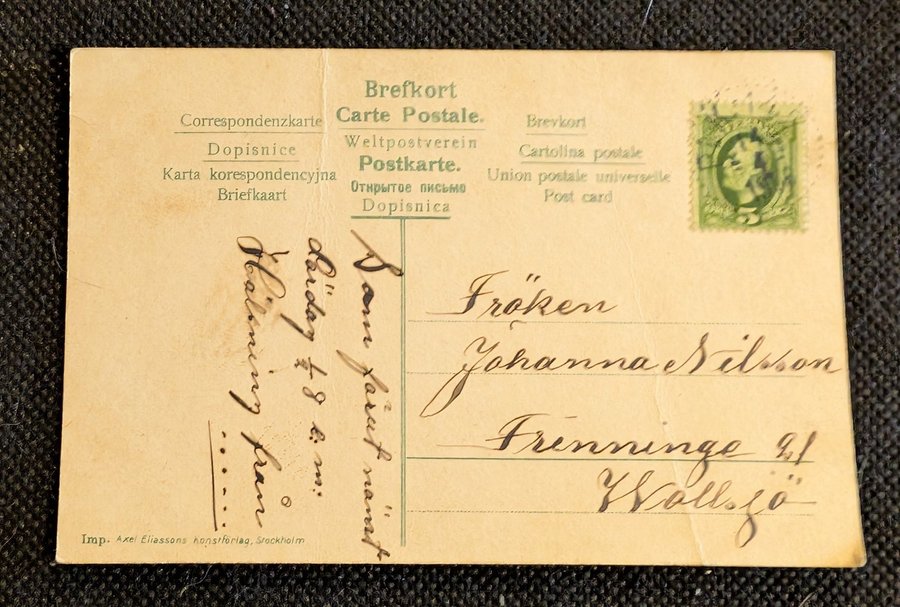 Brefkort
Carte Postale.
Weltpostverein
Postkarte.
Открытое письмо
Dopisnica
Correspondenzkarte
Dopisnice
Karta korespondencyjna
Briefkaart
Brevkort
Cartolina postale
Union postale universelle
Post card
5
Sam förut nämt
Lördag ½ 8 e. m:
Hälsning från
.....
Fröken
Johanna Nilsson
Frenninge 21
Wollsjö
Imp. Axel Eliassons konstförlag, Stockholm